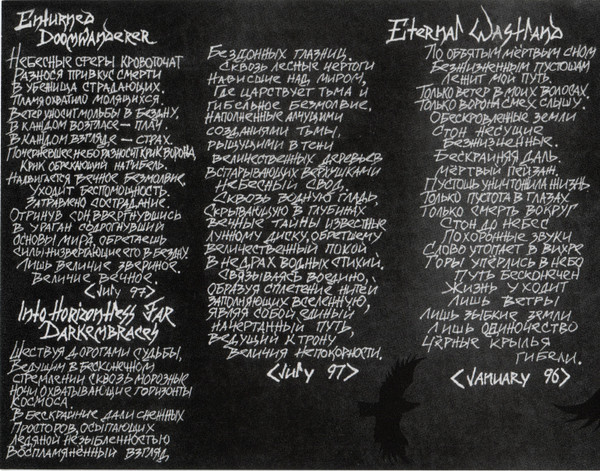 Enturned
Doomwanderer
Небесные сферы кровоточат
Разнося привкус смерти
В убежища страдающих.
Пламя охватило молящихся.
Ветер уносит мольбы в Бездну.
В каждом возгласе — плач.
В каждом взгляде — страх.
Почерневшее небо разносит крик ворона,
Крик обрекающий на гибель.
Надвигается вечное безмолвие,
Уходит беспомощность.
Затравлено сострадание.
Отринув сон ввергнувшись
В ураган содрогнувший
Основы мира, обретаешь
Силы низвергающие его в Бездну.
Лишь величие звериное.
Величие вечное.
<July 97>
Into Horizontless Far
Darkembraces
Шествуя дорогами судьбы,
Ведущим в бесконечном
Стремлении сквозь морозные
Ночи охватывающие горизонты
Космоса.
В бескрайние дали снежных
Просторов, осыпающих
Ледяной незыбленностью
Воспламененный взгляд
Бездонных глазниц,
Сквозь лесные чертоги
Нависшие над миром,
Где царствует тьма и
Гибельное безмолвие.
Наполненные алчущими
Созданиями тьмы,
Рыщущими в тени
Величественных деревьев
Вспарывающих верхушками
Небесный свод,
Сквозь водную гладь,
Скрывающую в глубинах
Вечные тайны известные
Лунному диску, обретшему
Величественный покой
В недрах водных стихий.
Связываясь воедино,
Образуя сплетение нитей
Заполняющих вселенную,
Являя собой единый
Начертанный путь,
Ведущий к трону
Величия непокорности.
<July 97>
Eternal Wastland
По объятым мёртвым сном
Безжизненным пустошам
Лежит мой путь.
Только ветер в моих волосах.
Только ворона смех слышу.
Обескровленные земли
Стон несущие
Безжизненные.
Бескрайняя даль.
Мёртвый пейзаж.
Пустошь уничтожила жизнь
Только пустота в глазах
Только смерть вокруг
Стон до небес
Похоронные звуки
Слово утопает в вихре
Горы упёрлись в небо
Путь бесконечен
Жизнь уходит
Лишь ветры
Лишь зыбкие земли
Лишь одиночество
Чёрные крылья
гибели.
<January 96>